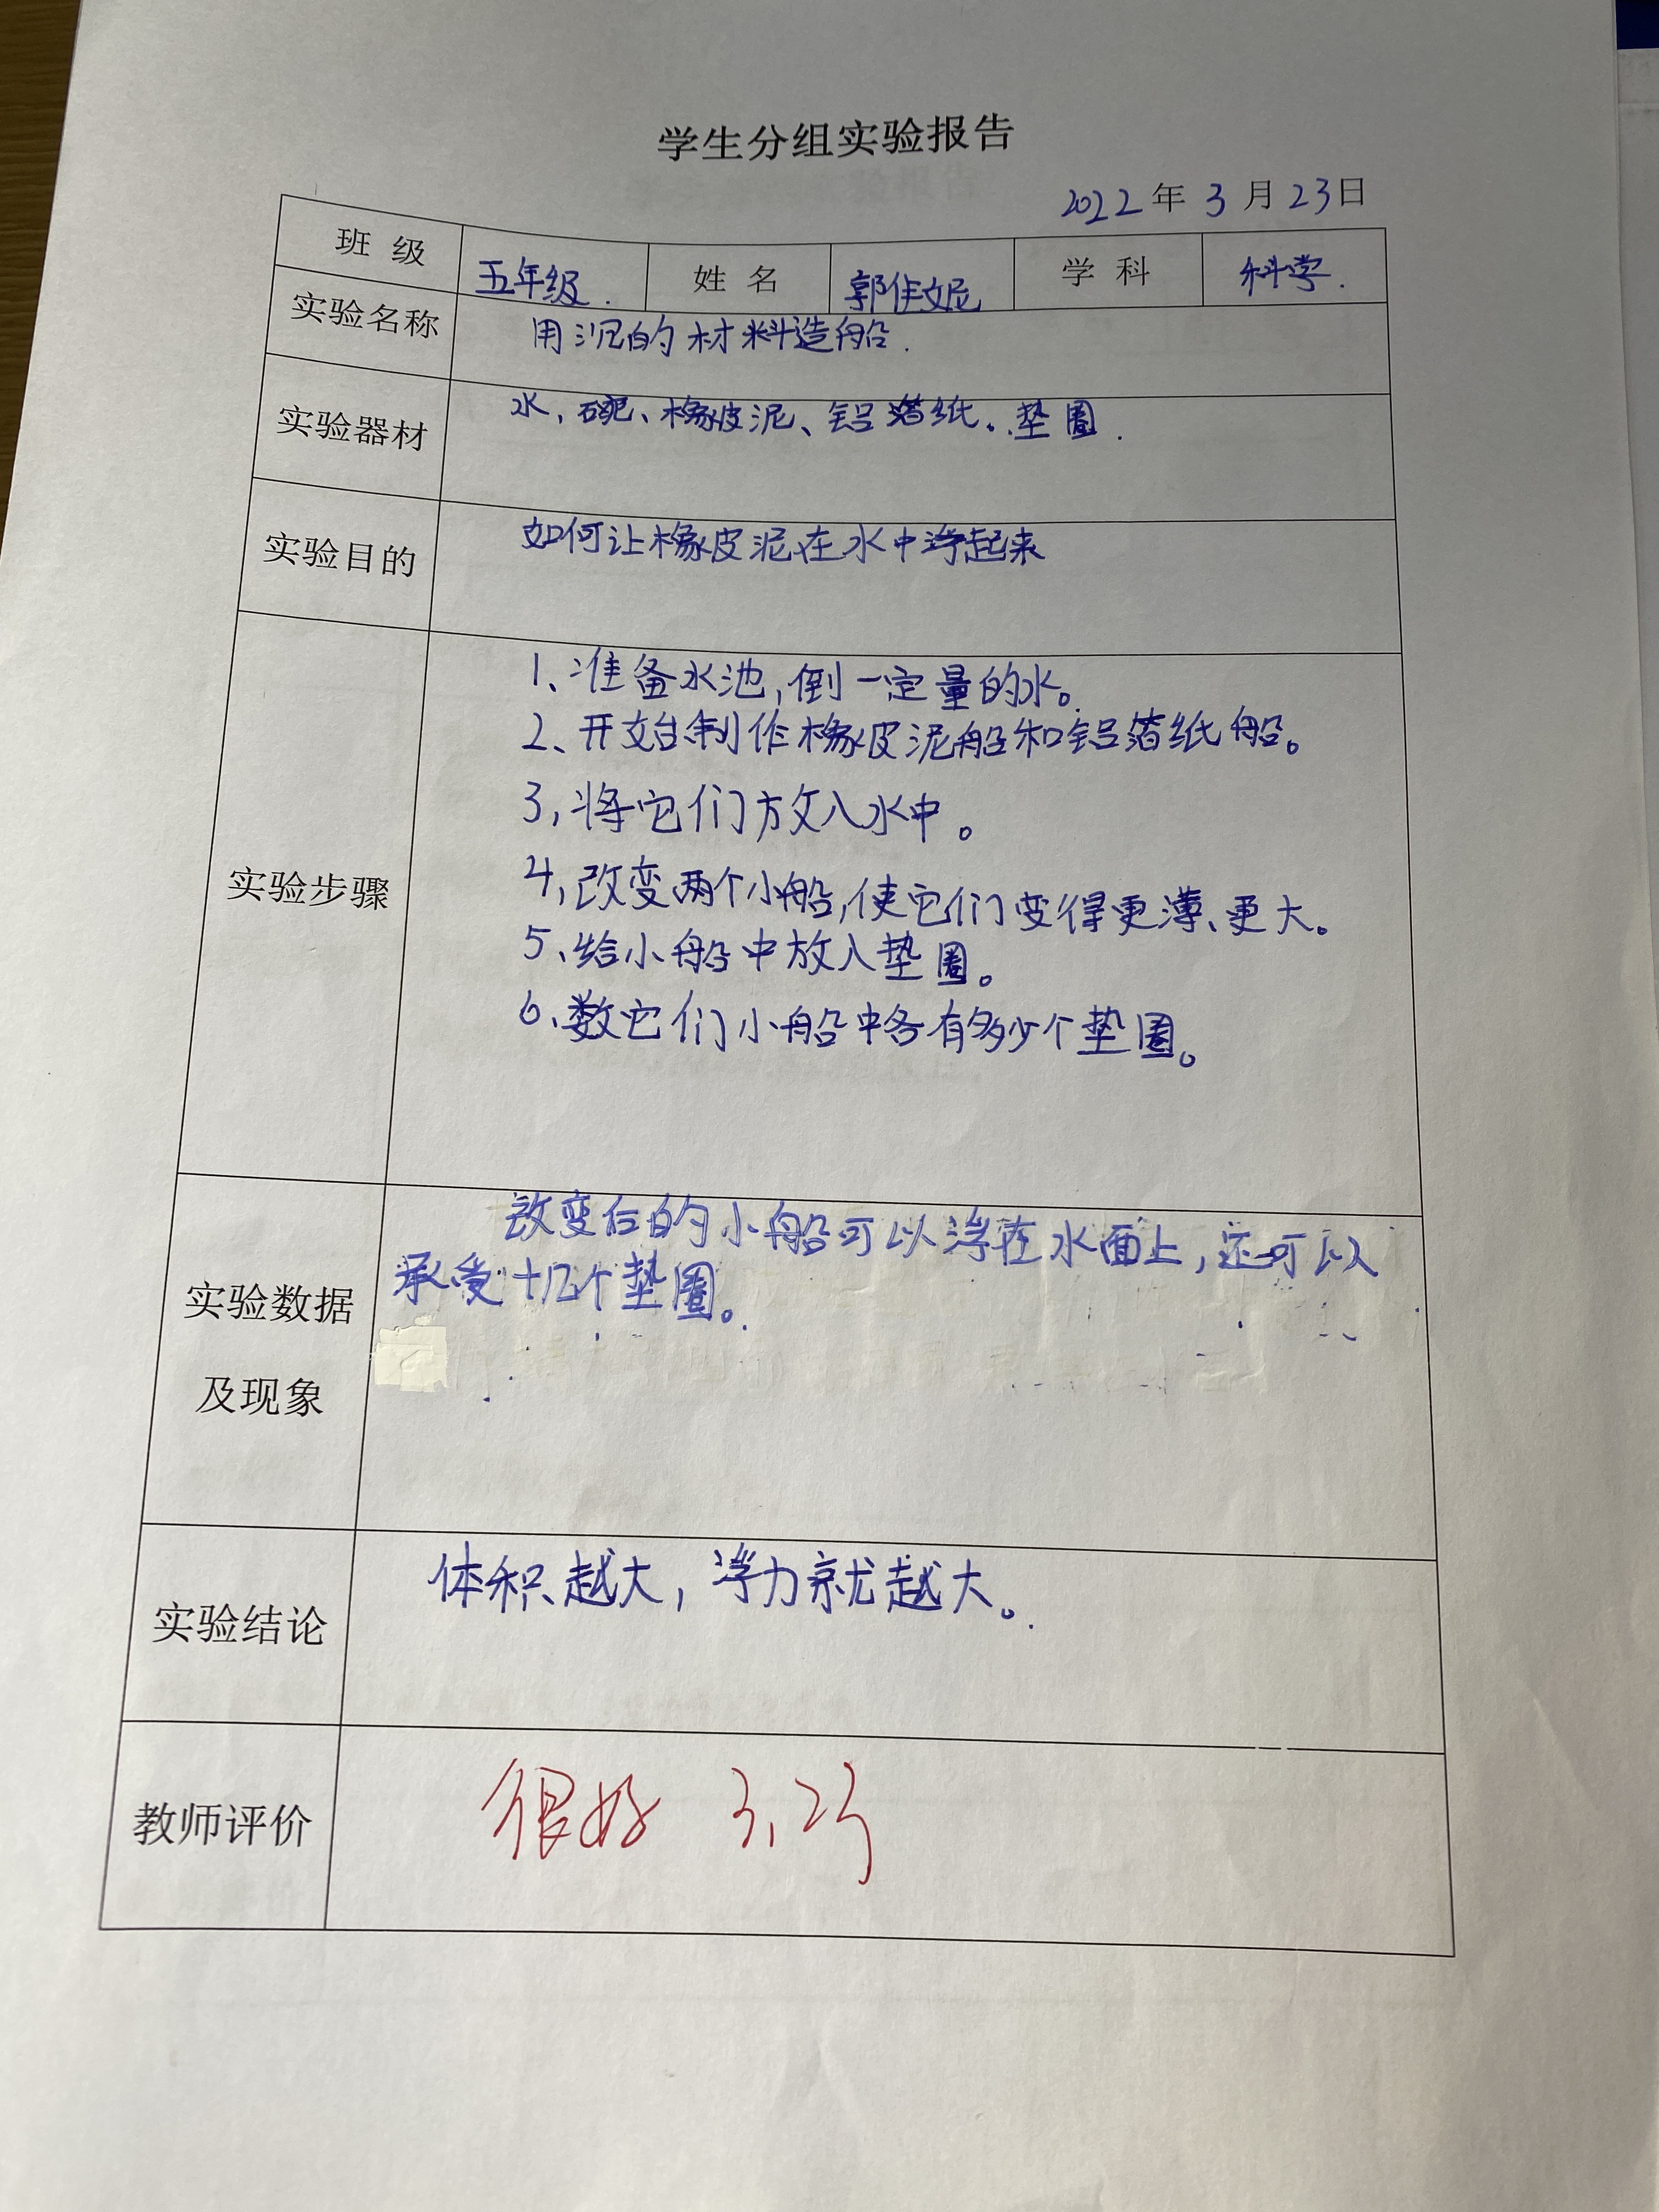 学生分组实验报告
2022年3月23日
班级 五年级. 姓名 郭佳妮 学科 科学.
实验名称 用沉的材料造船.
实验器材 水,碗、橡皮泥、铝箔纸。垫圈.
实验目的 如何让橡皮泥在水中浮起来
实验步骤
1、准备水池,倒一定量的水。
2、开始制作橡皮泥船和铝箔纸船。
3,将它们放入水中。
4,改变两个小船,使它们变得更薄、更大。
5、给小船中放入垫圈。
6、数它们小船中各有多少个垫圈。
实验数据
及现象
改变后的小船可以浮在水面上,还可以
承受十几个垫圈。
实验结论 体积越大,浮力就越大。
教师评价 很好 3.23